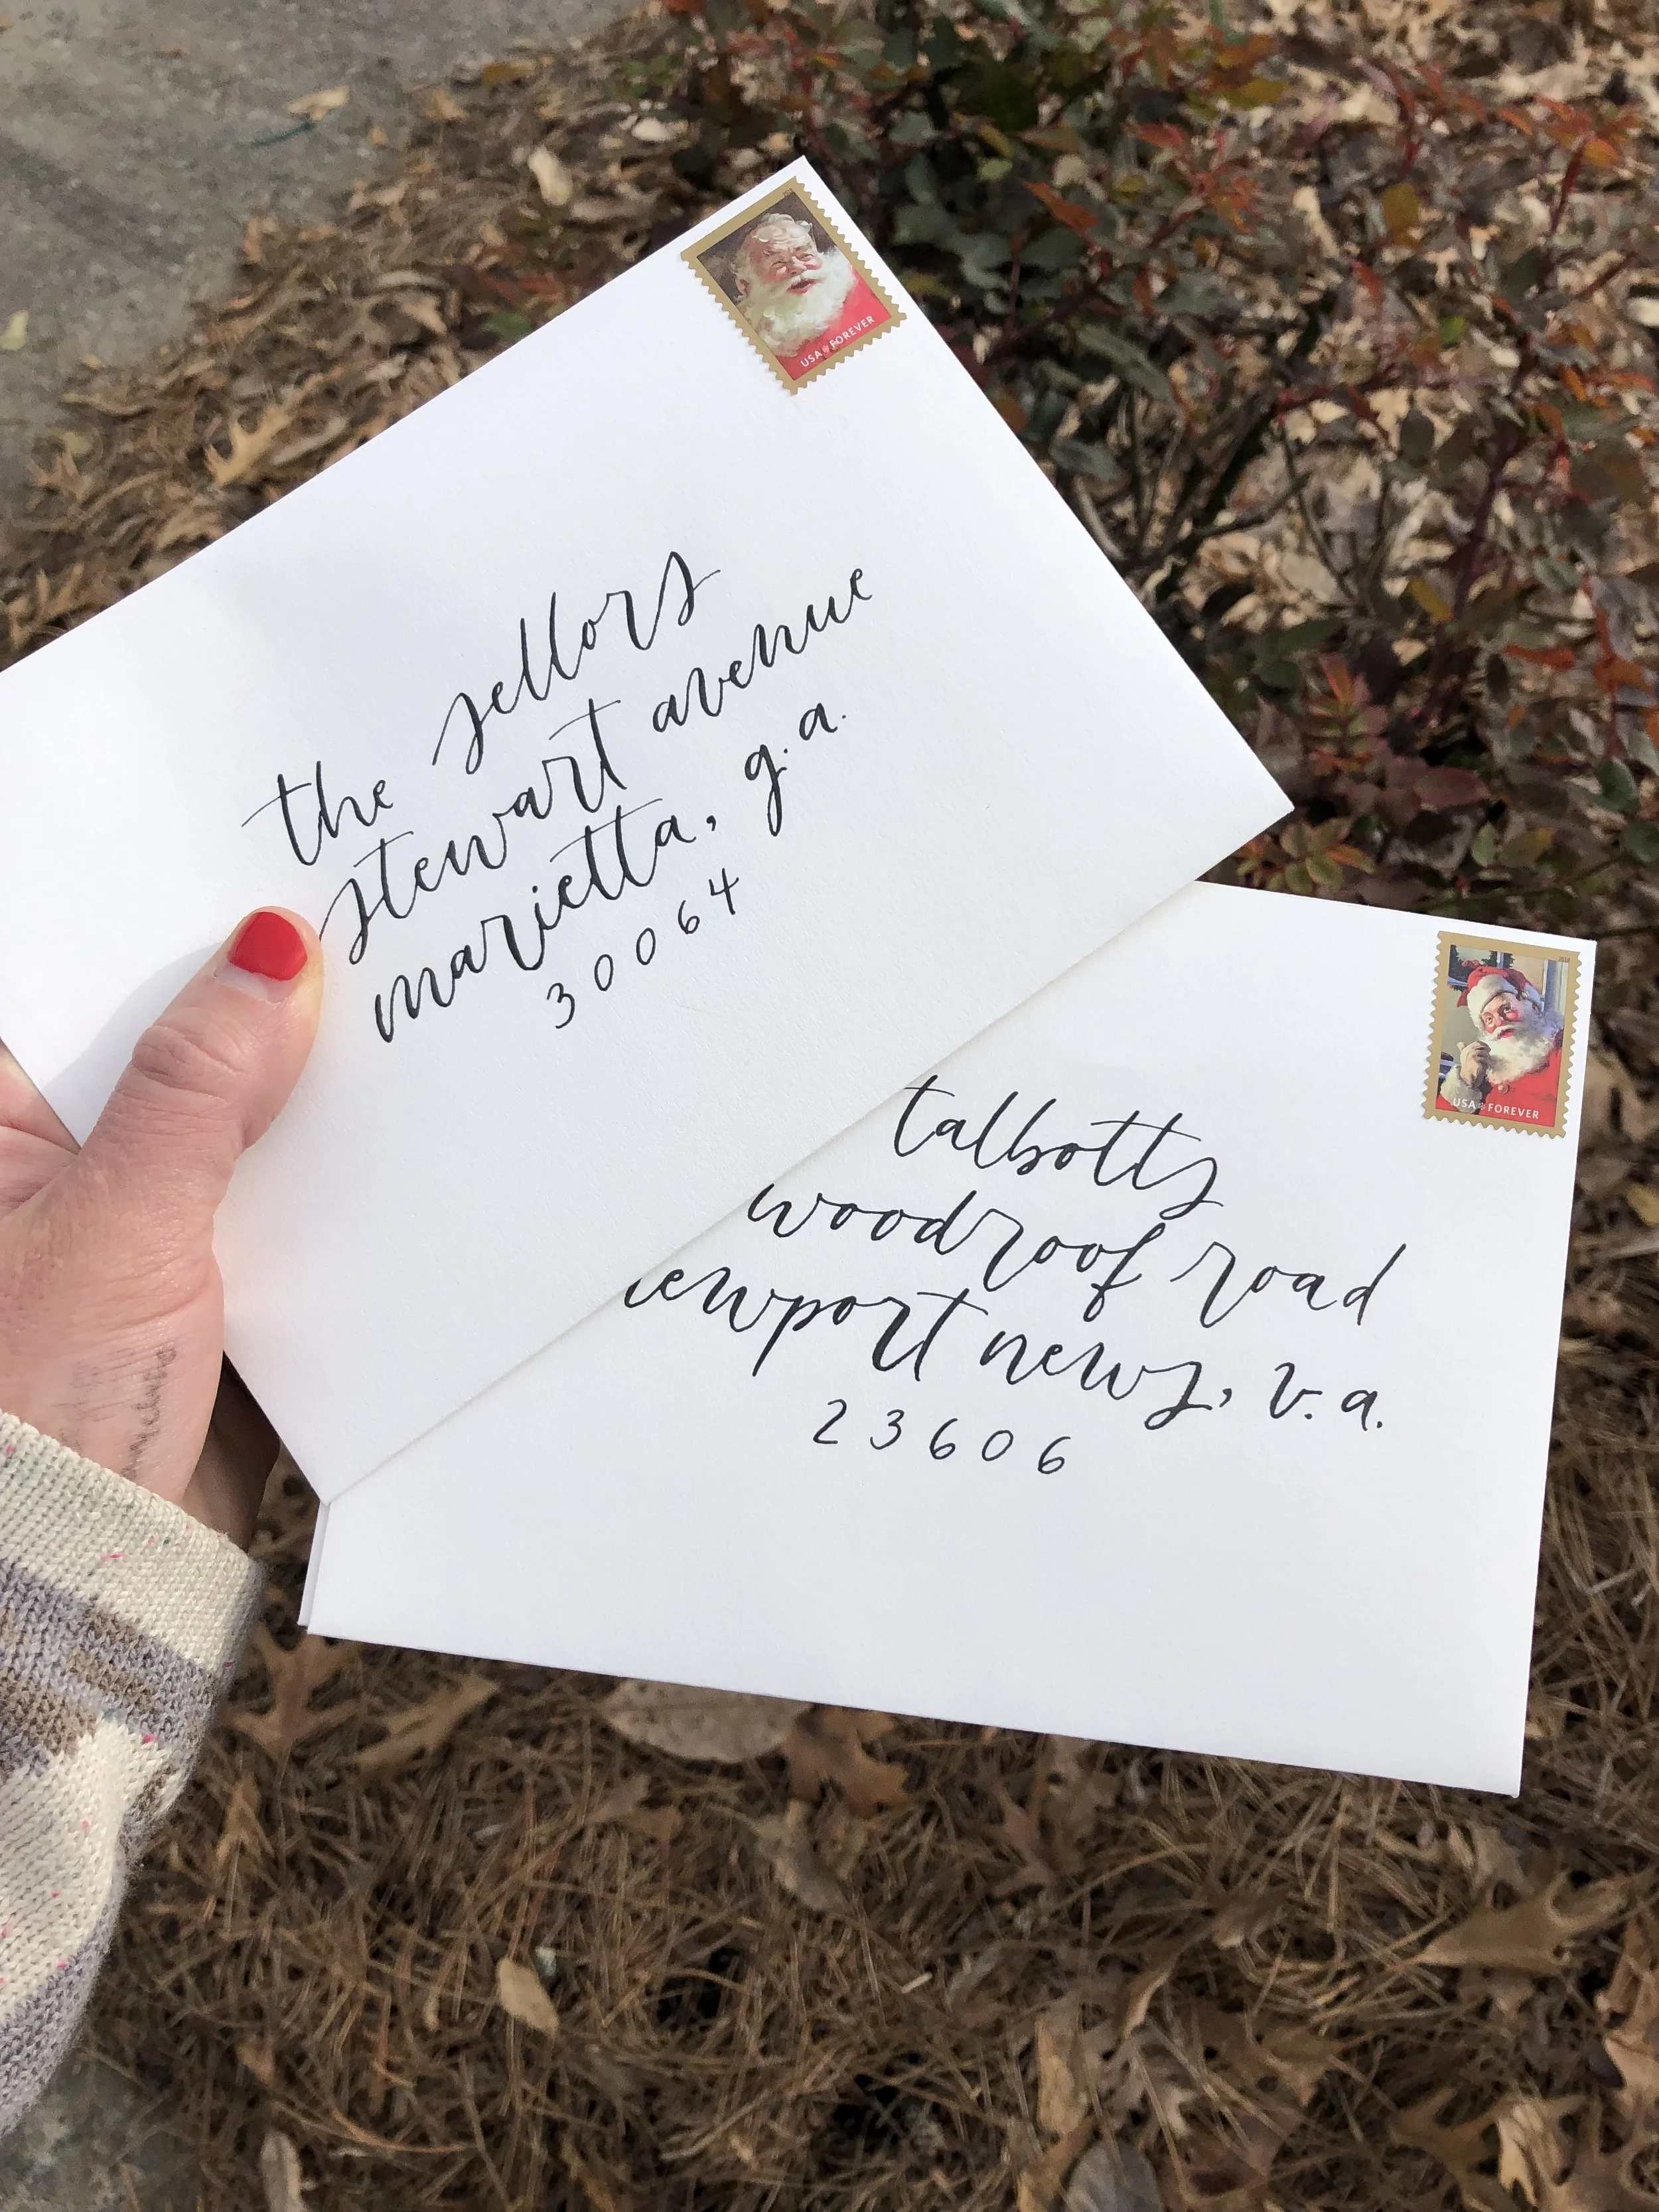 USA FOREVER
the sellors
stewart avenue
marietta, g.a.
30064
2018
USA FOREVER
talbotts
woodroof road
ewport news, v.a.
23606